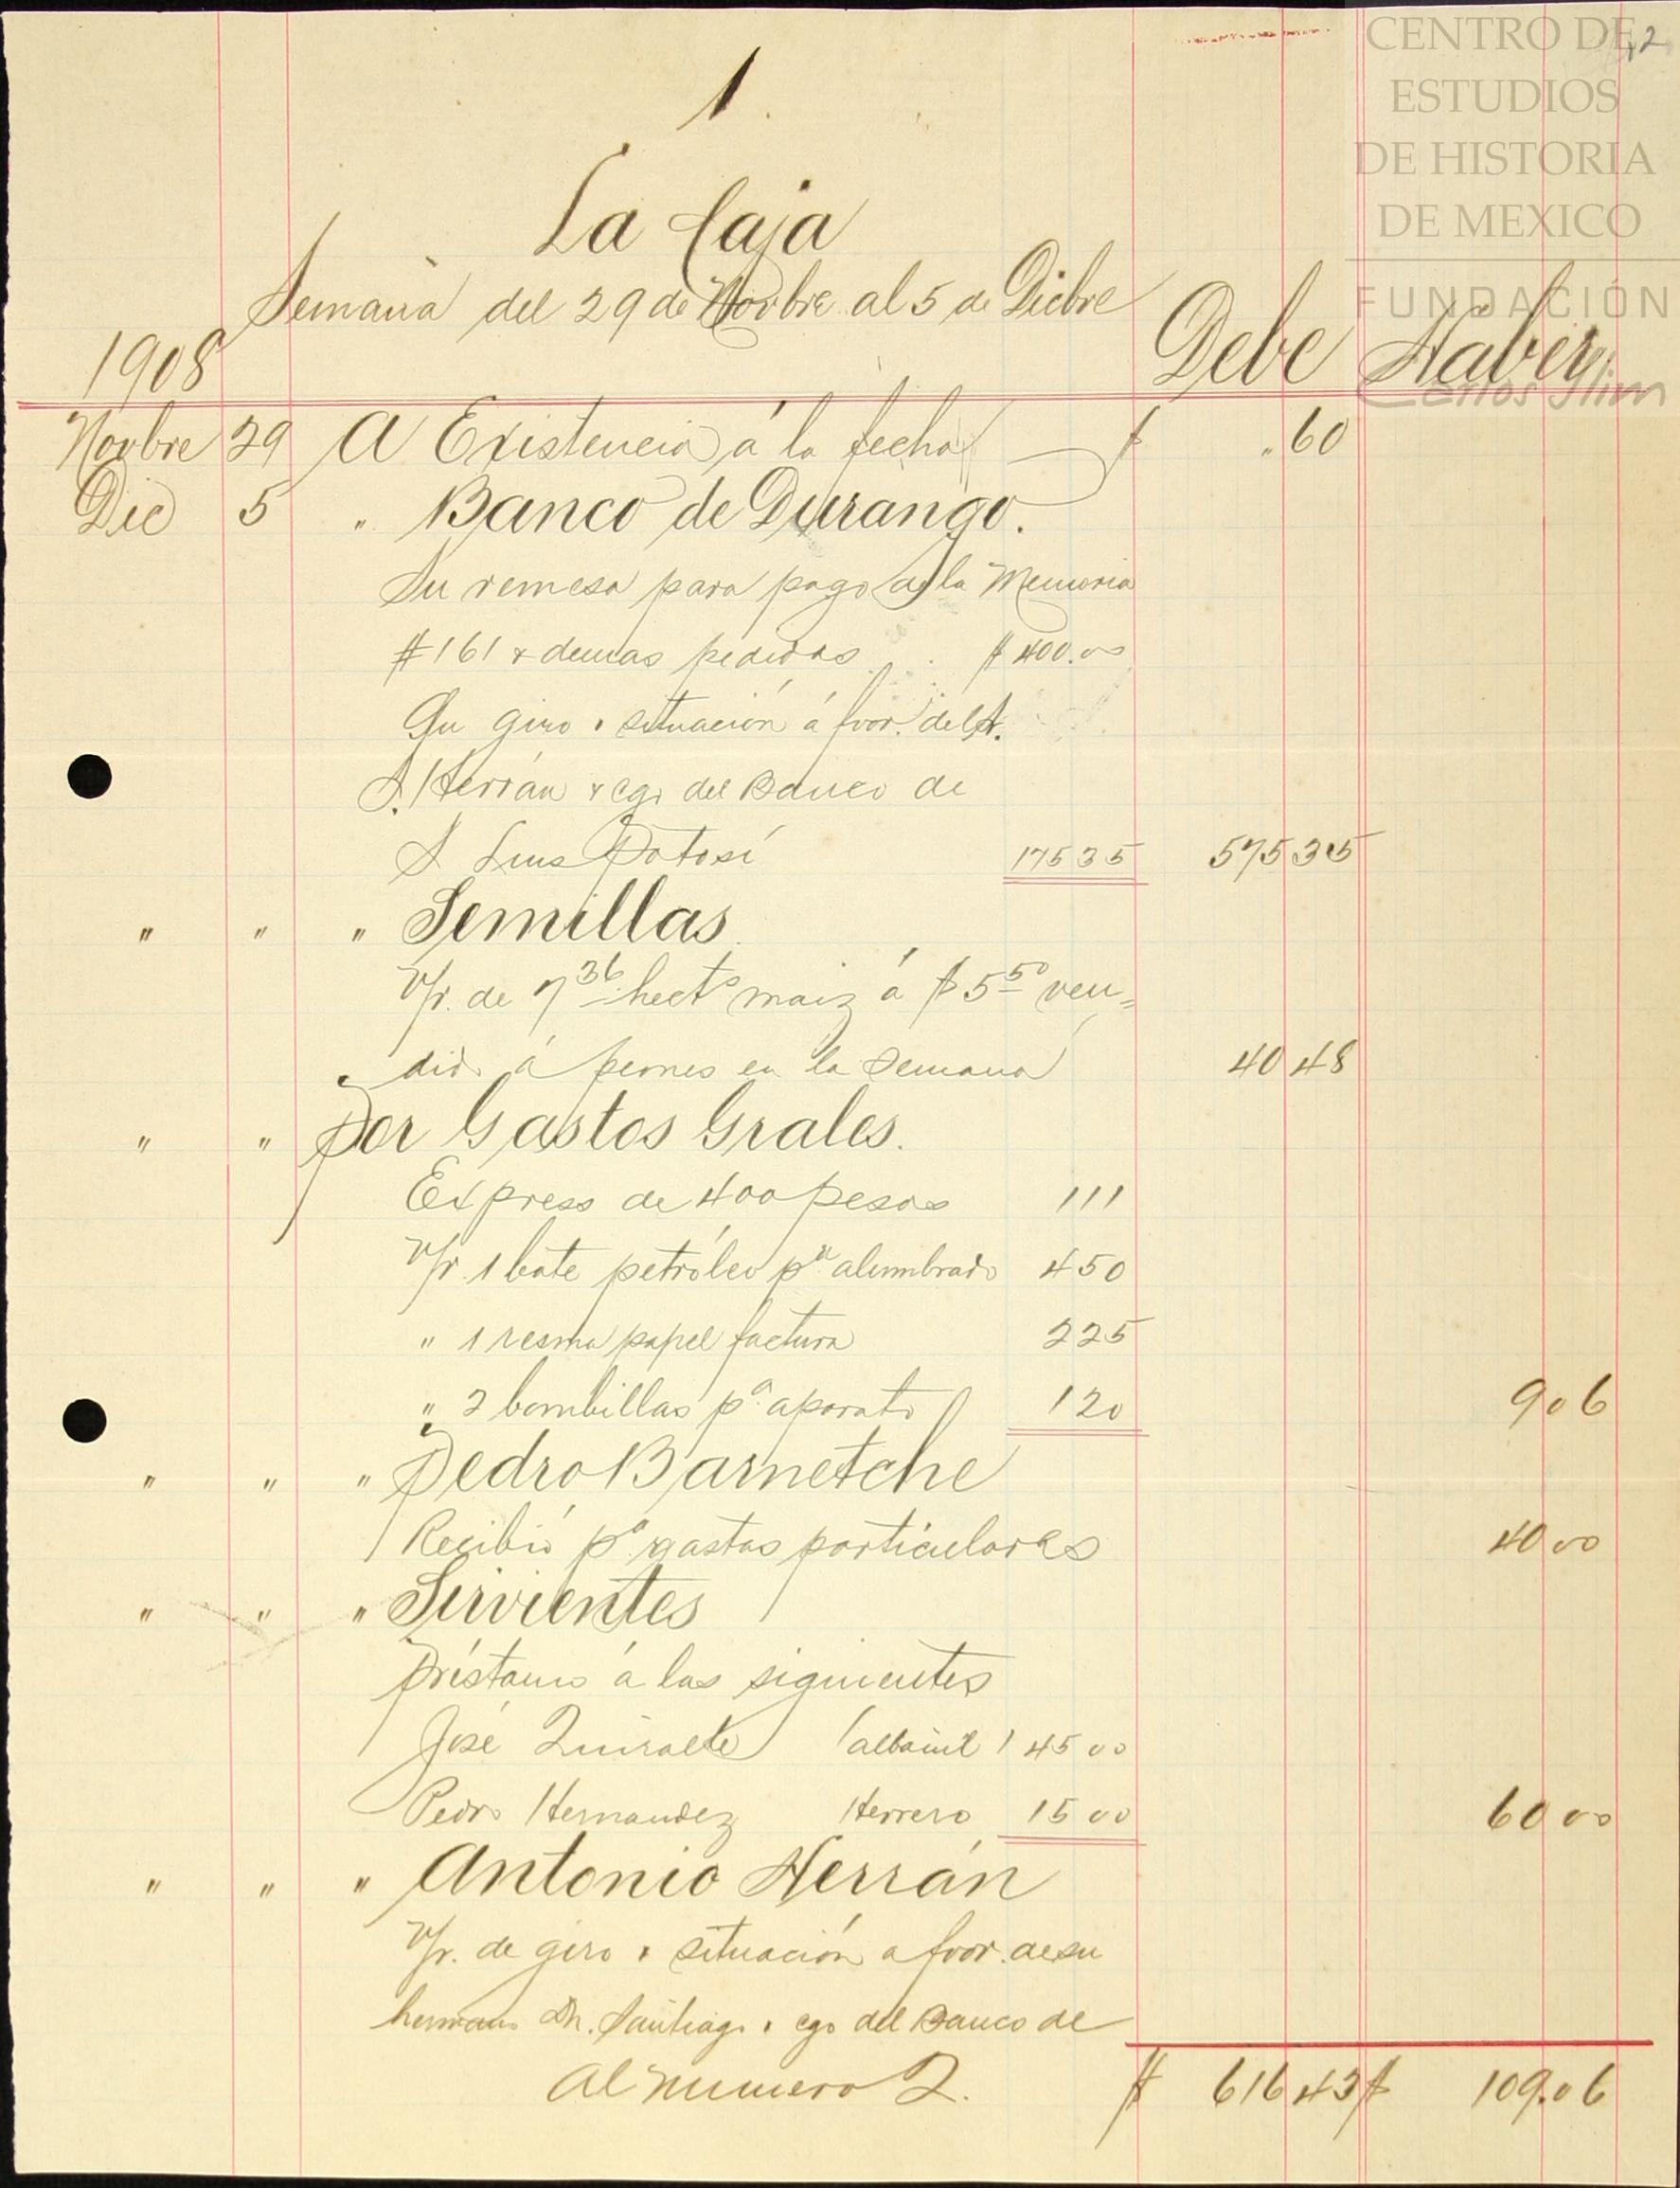 CENTRO DE
ESTUDIOS
DE HISTORIA
DE MEXICO
FUNDACIÓN
Carlos Slim
1.
La Caja
Semana del 29 de Novbre al 5 de Dicbre
1908 Debe Haber
Novbre 29 A Existencia á la fecha $ .60
Dic 5 " Banco de Durango.
Su remesa para pago de la Memoria
#161 & demas pedidos . . $ 400.00
Su giro s situación á fvor. del Sr.
S. Herrán & cgo del Banco de
S Luis Potosí 175 35 575 35
" " " Semillas.
V/r. de 7 36 hects maiz á $ 5 50 ven=
dido á peones en la Semana 40 48
" " Por Gastos Grales.
Express de 400 pesos 1 11
V/r. 1 bote petróleo pa alumbrado 4 50
" 1 resma papel factura 2 25
" 2 bombillas pa aparato 1 20 9 06
" " " Pedro Barnetche
Recibió pa gastos particulares 40 00
" " " Sirvientes
Préstamo á los siguientes
José (albañil) 45 00
Pedro Hernandez Herrero 15 00 60 00
" " " Antonio Herrán
V/r. de giro s situación a fvor. de su
hermano Dn. Santiago s cgo del Banco de
Al numero 2. $ 616 43 $ 109.06